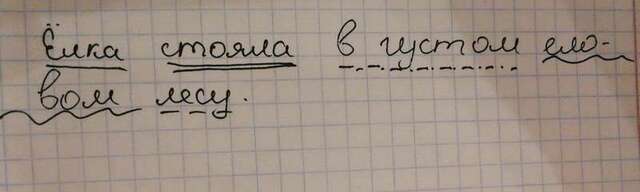 Ёлка стояла в густом ело-
вом лесу.